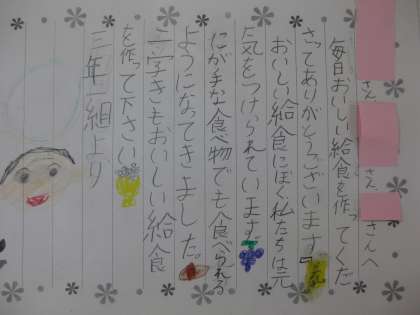 さん さん さんへ
毎日おいしい給食を作ってくだ
さってありがとうございます。
おいしい給食にぼく私たちは元
気をつけられています。
にが手な食べ物でも食べられる
ようになってきました。
二学きもおいしい給食
を作って下さい。
三年一組より